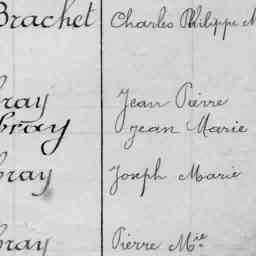 Brachet Charles Philippe M
bray Jean Pierre
bray Jean Marie
bray Joseph Marie
bray Pierre Mie